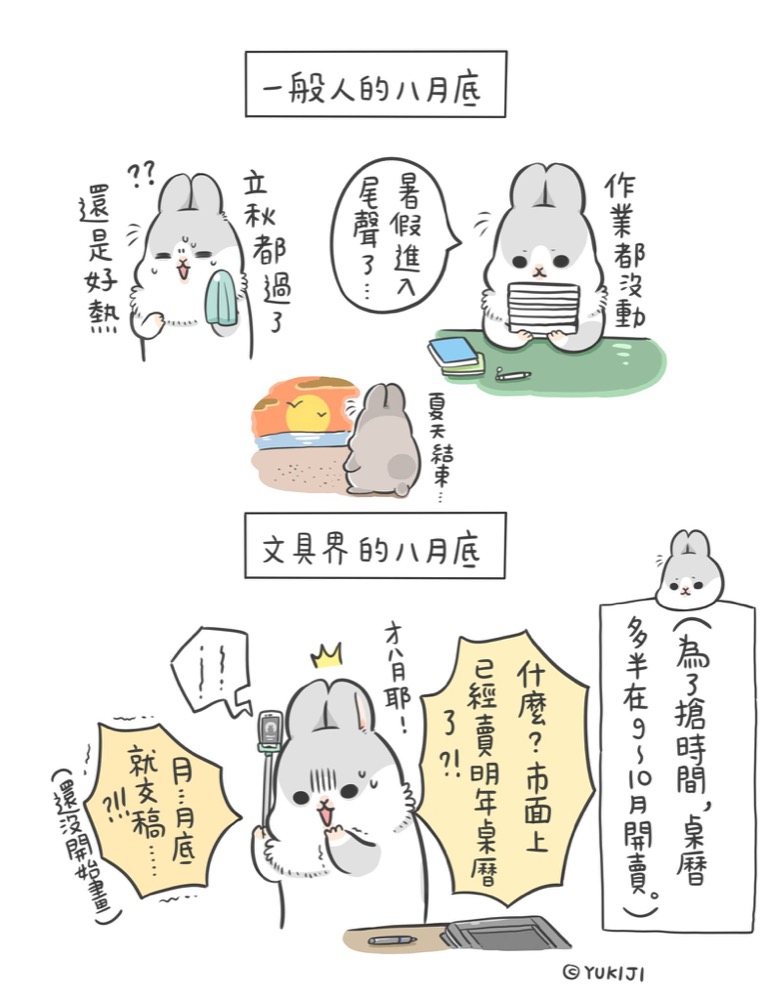 一般人的八月底
作業都沒動
暑假進入
尾聲了…
立秋都過了
還是好熱
??
夏天結束…
文具界的八月底
(為了搶時間,桌曆
多半在9~10月開賣。)
什麼?市面上
已經賣明年桌曆
了?!
才八月耶!
月…月底
就交稿……
?!!
(還沒開始畫)
©YUKIJI